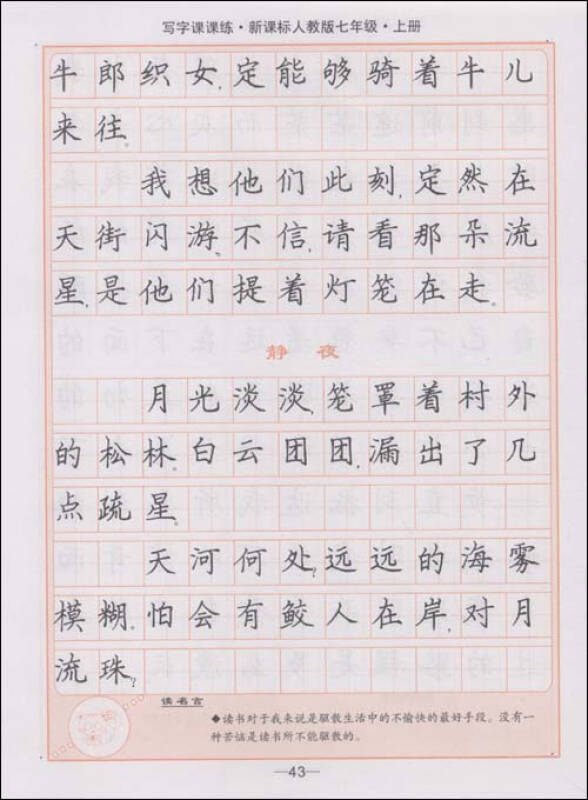 写字课课练·新课标人教版七年级·上册
牛郎织女,定能够骑着牛儿
来往。
我想他们此刻,定然在
天街闪游,不信,请看那朵流
星,是他们提着灯笼在走。
静夜
月光淡淡,笼罩着村外
的松林。白云团团,漏出了几
点疏星。
天河何处?远远的海雾
模糊。怕会有鲛人在岸,对月
流珠?
读名言
◆读书对于我来说是驱散生活中的不愉快的最好手段。没有一
种苦恼是读书所不能驱散的。
—43—